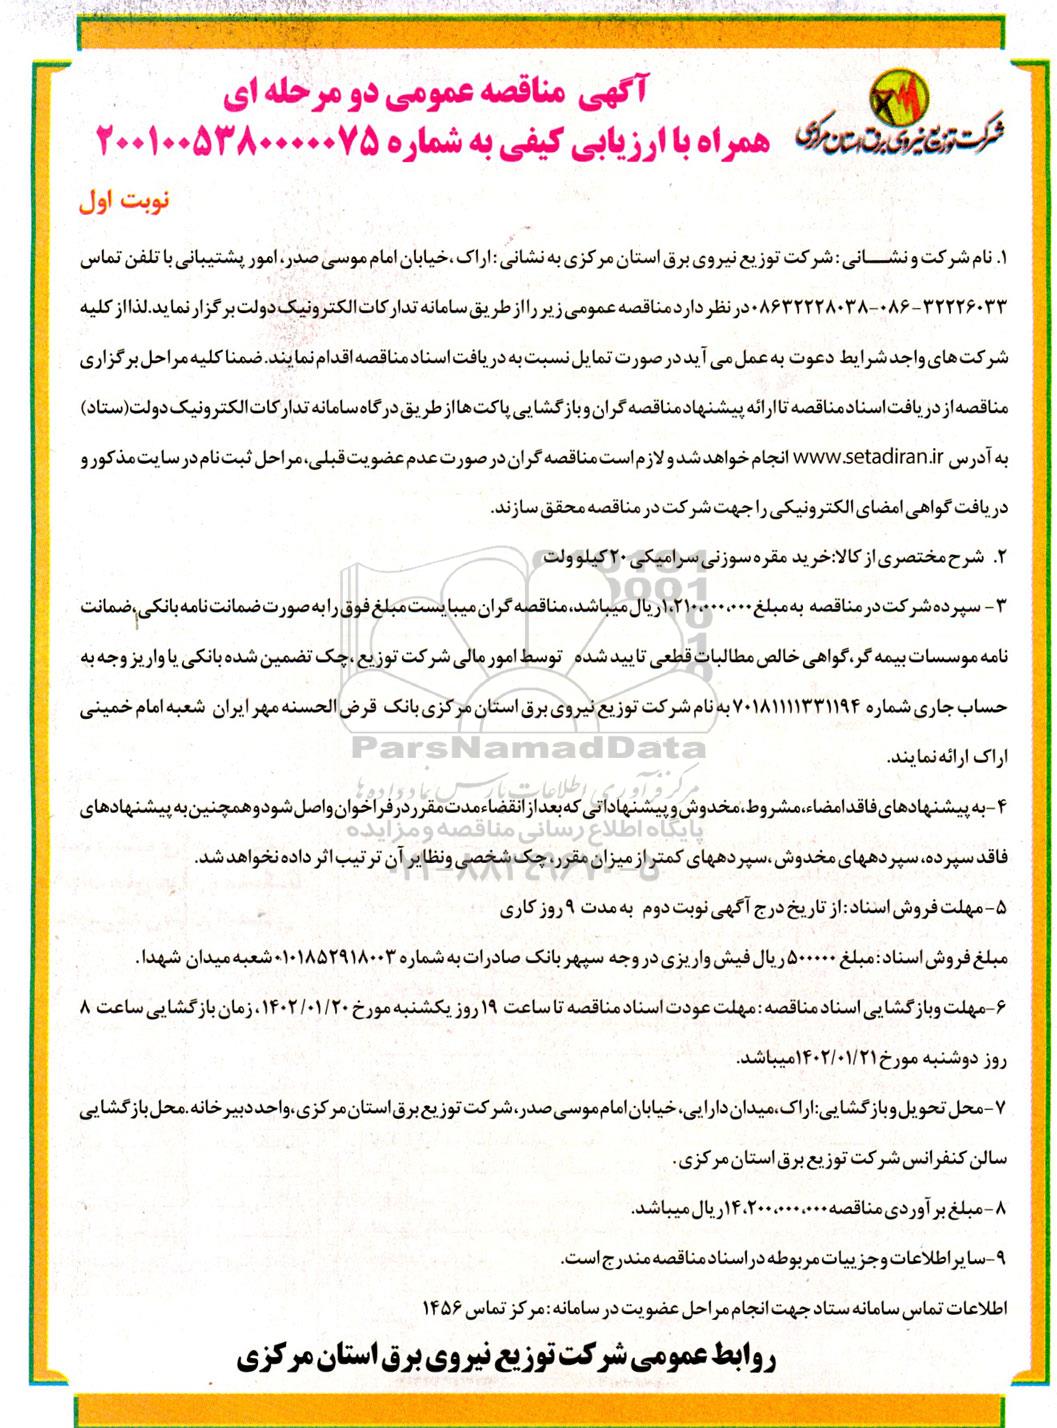 شرکت توزیع نیروی برق استان مرکزی
آگهی مناقصه عمومی دو مرحله ای
همراه با ارزیابی کیفی به شماره ۲۰۰۱۰۰۵۳۸۰۰۰۰۰۷۵
نوبت اول
۱. نام شرکت و نشـــانی : شرکت توزیع نیروی برق استان مرکزی به نشانی : اراک ،خیابان امام موسی صدر، امور پشتیبانی با تلفن تماس
۳۲۲۲۶۰۳۳-۰۸۶-۰۸۶۳۲۲۲۸۰۳۸در نظر دارد مناقصه عمومی زیر را از طریق سامانه تدارکات الکترونیک دولت برگزار نماید.لذا از کلیه
شرکت های واجد شرایط دعوت به عمل می آید در صورت تمایل نسبت به دریافت اسناد مناقصه اقدام نمایند. ضمنا کلیه مراحل برگزاری
مناقصه از دریافت اسناد مناقصه تا ارائه پیشنهاد مناقصه گران و بازگشایی پاکت ها از طریق درگاه سامانه تدارکات الکترونیک دولت(ستاد)
به آدرس www.setadiran.ir انجام خواهد شد و لازم است مناقصه گران در صورت عدم عضویت قبلی، مراحل ثبت نام در سایت مذکور و
دریافت گواهی امضای الکترونیکی را جهت شرکت در مناقصه محقق سازند.
۲. شرح مختصری از کالا:خرید مقره سوزنی سرامیکی ۲۰کیلو ولت
۳- سپرده شرکت در مناقصه به مبلغ ۱،۲۱۰،۰۰۰،۰۰۰ریال میباشد، مناقصه گران میبایست مبلغ فوق را به صورت ضمانت نامه بانکی،ضمانت
نامه موسسات بیمه گر،گواهی خالص مطالبات قطعی تایید شده توسط امور مالی شرکت توزیع ،چک تضمین شده بانکی یا واریز وجه به
حساب جاری شماره ۷۰۱۸۱۱۱۱۳۳۱۱۹۴ به نام شرکت توزیع نیروی برق استان مرکزی بانک قرض الحسنه مهر ایران شعبه امام خمینی
اراک ارائه نمایند.
۴-به پیشنهادهای فاقد امضاء، مشروط،مخدوش و پیشنهاداتی که بعد از انقضاء مدت مقرر در فراخوان واصل شود و همچنین به پیشنهادهای
فاقد سپرده، سپرد‌ههای مخدوش ،سپرد‌ههای کمتر از میزان مقرر، چک شخصی ونظایر آن ترتیب اثر داده نخواهد شد.
۵-مهلت فروش اسناد :از تاریخ درج آگهی نوبت دوم به مدت ۹ روز کاری
مبلغ فروش اسناد : مبلغ ۵۰۰۰۰۰ ریال فیش واریزی در وجه سپهر بانک صادرات به شماره ۰۱۰۱۸۵۲۹۱۸۰۰۳شعبه میدان شهدا.
۶-مهلت وبازگشایی اسناد مناقصه : مهلت عودت اسناد مناقصه تا ساعت ۱۹ روز یکشنبه مورخ ۱۴۰۲/۰۱/۲۰ ، زمان بازگشایی ساعت ۸
روز دوشنبه مورخ ۱۴۰۲/۰۱/۲۱میباشد.
۷-محل تحویل و بازگشایی:اراک،میدان دارایی، خیابان امام موسی صدر، شرکت توزیع برق استان مرکزی،واحد دبیرخانه.محل بازگشایی
سالن کنفرانس شرکت توزیع برق استان مرکزی.
۸-مبلغ برآوردی مناقصه ۱۴،۲۰۰،۰۰۰،۰۰۰ریال میباشد.
۹-سایر اطلاعات و جزییات مربوطه در اسناد مناقصه مندرج است.
اطلاعات تماس سامانه ستاد جهت انجام مراحل عضویت در سامانه : مرکز تماس ۱۴۵۶
روابط عمومی شرکت توزیع نیروی برق استان مرکزی
ParsNamadData
مرکز فرآوری اطلاعات پارس نماد داده ها
پایگاه اطلاع رسانی مناقصه و مزایده
۰۲۱-۸۸۳۴۹۶۷۰-۵